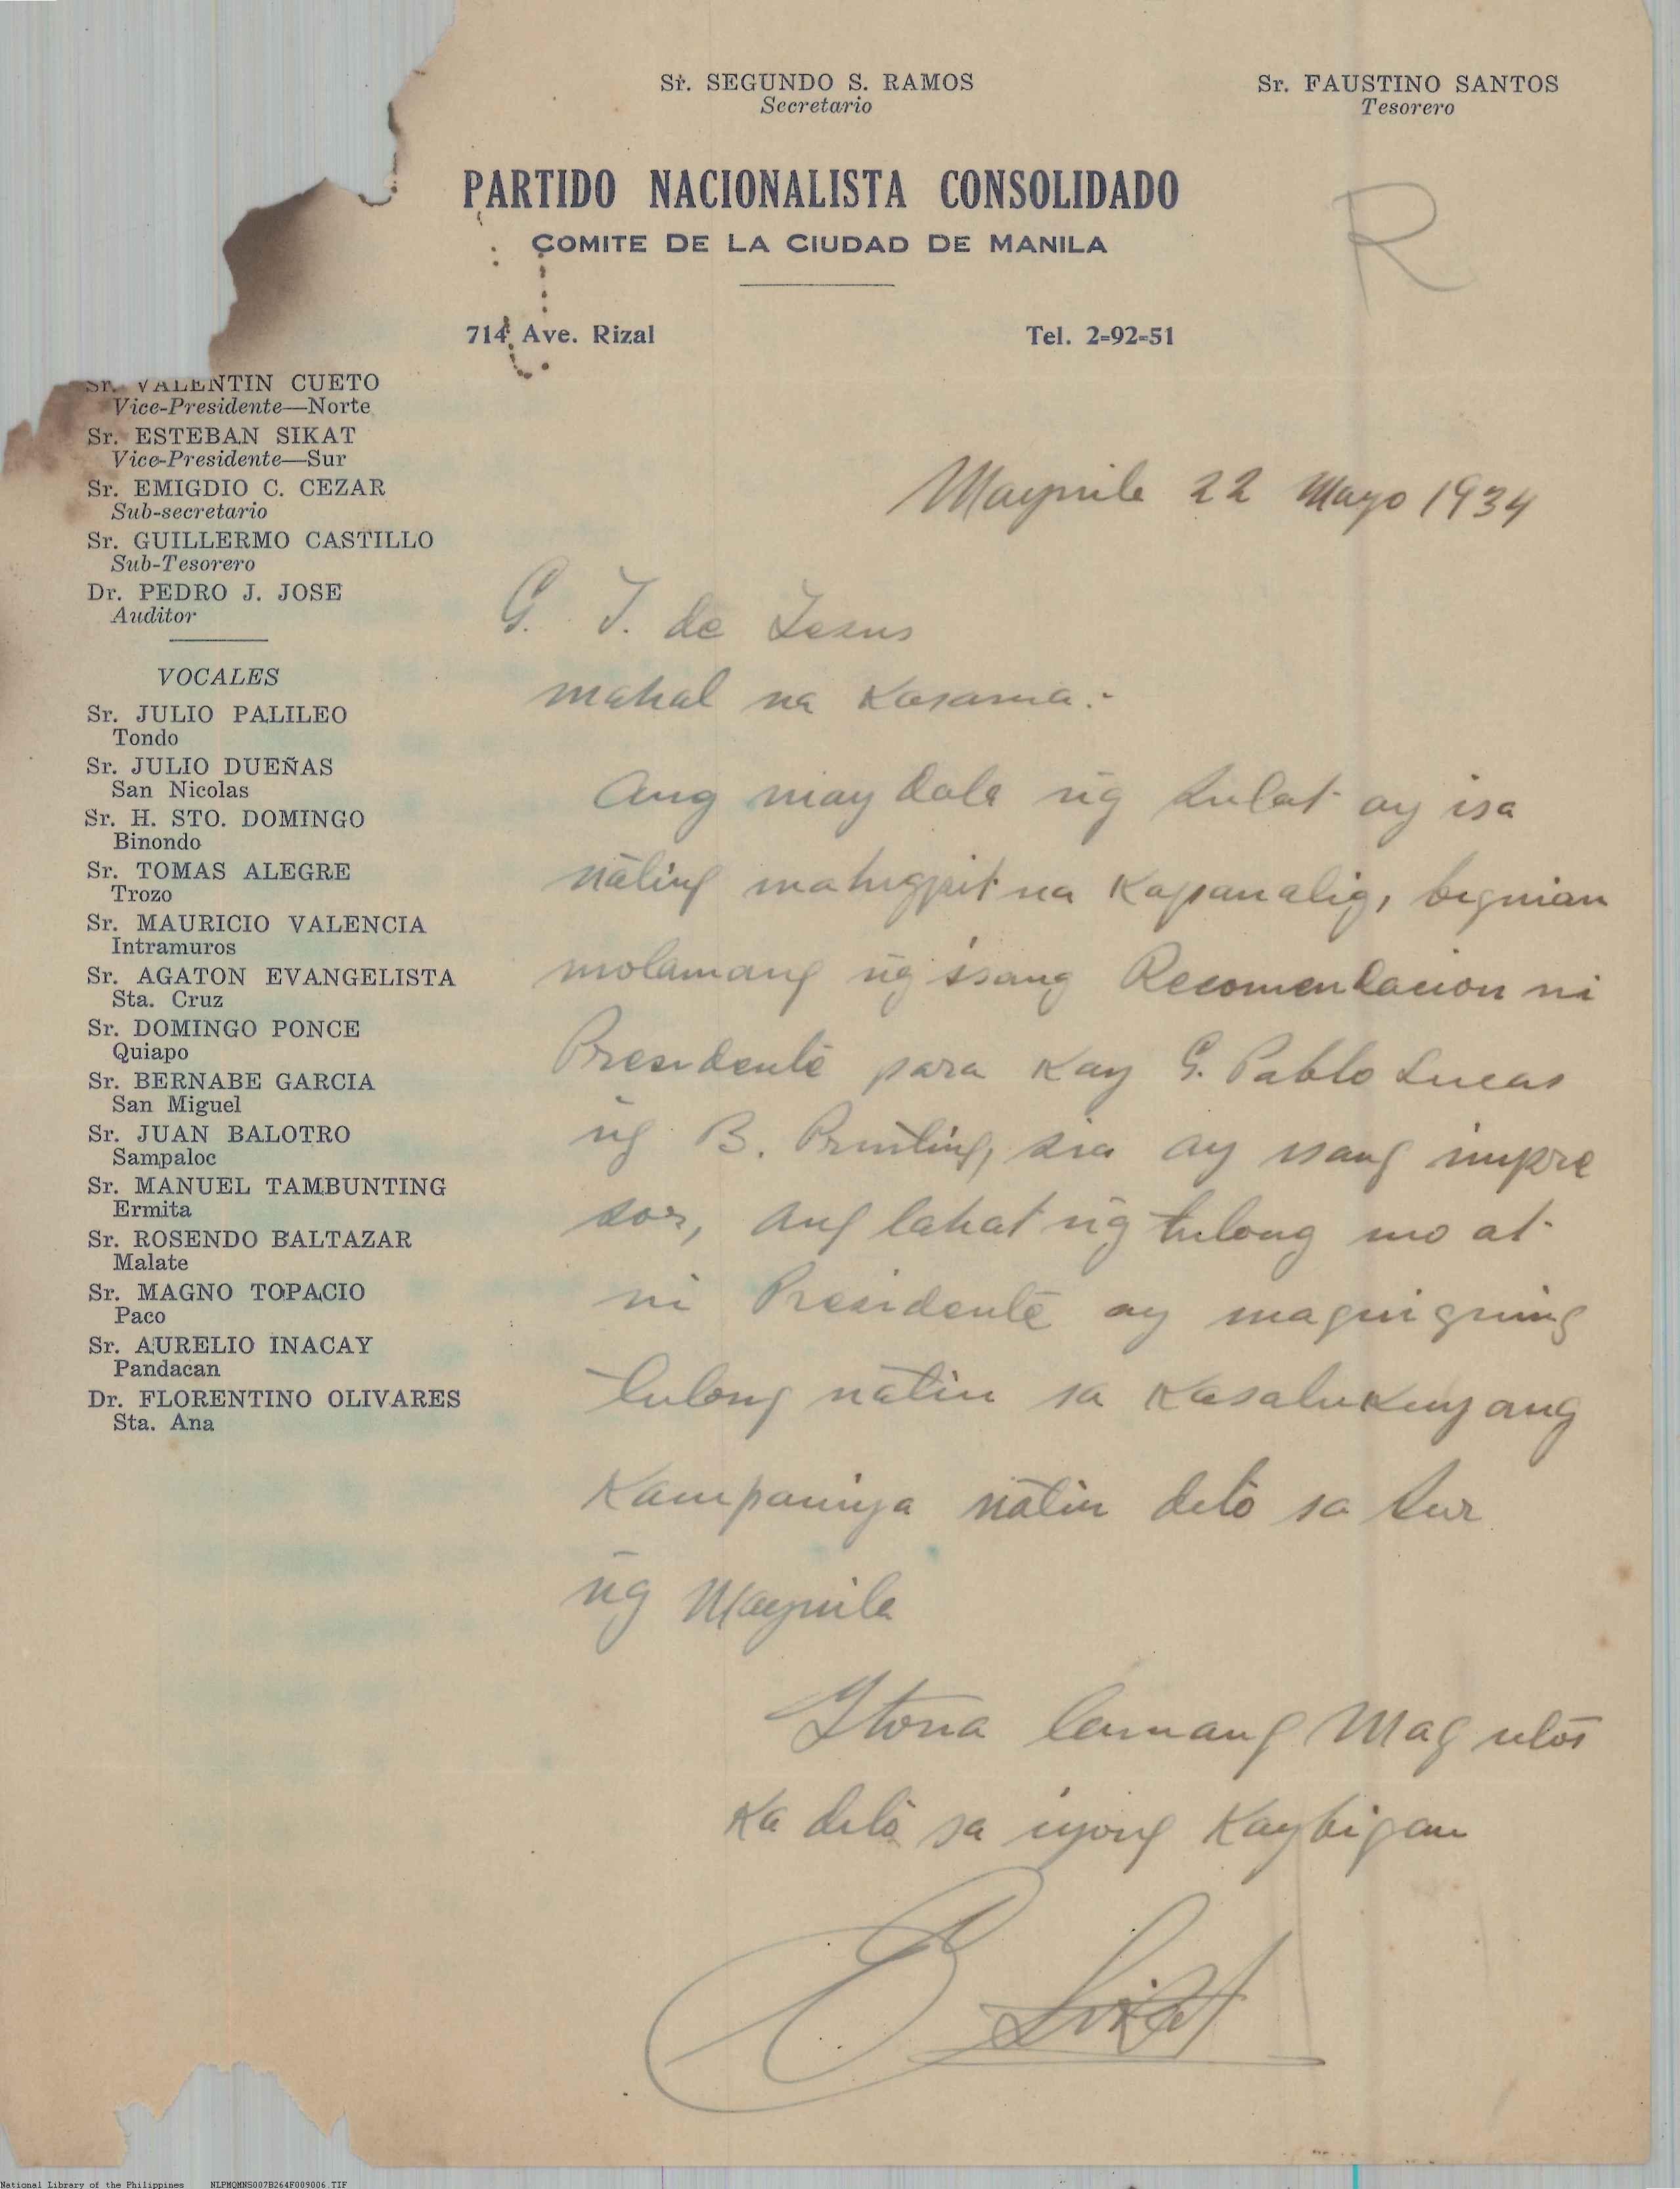 Sr. SEGUNDO S. RAMOS
Secretario
Sr. FAUSTINO SANTOS
Tesorero
PARTIDO NACIONALISTA CONSOLIDADO
COMITE DE LA CIUDAD DE MANILA
R
714 Ave. Rizal
Tel. 2-92-51
Sr. VALENTIN CUETO
Vice-Presidente—Norte
Sr. ESTEBAN SIKAT
Vice-Presidente—Sur
Sr. EMIGDIO C. CEZAR
Sub-secretario
Sr. GUILLERMO CASTILLO
Sub-Tesorero
Dr. PEDRO J. JOSE
Auditor
VOCALES
Sr. JULIO PALILEO
Tondo
Sr. JULIO DUEÑAS
San Nicolas
Sr. H. STO. DOMINGO
Binondo
Sr. TOMAS ALEGRE
Trozo
Sr. MAURICIO VALENCIA
Intramuros
Sr. AGATON EVANGELISTA
Sta. Cruz
Sr. DOMINGO PONCE
Quiapo
Sr. BERNABE GARCIA
San Miguel
Sr. JUAN BALOTRO
Sampaloc
Sr. MANUEL TAMBUNTING
Ermita
Sr. ROSENDO BALTAZAR
Malate
Sr. MAGNO TOPACIO
Paco
Sr. AURELIO INACAY
Pandacan
Dr. FLORENTINO OLIVARES
Sta. Ana
Maynila 22 Mayo 1934
G. J. de Jesus
mahal na Kasama:-
Ang may dala ng sulat ay isa
nating mahigpit na Kapanalig, bignian
molamang ng isang Recomendacion ni
Presidente para Kay G. Pablo Lucas
ng B. Printing, sia ay isang impre
sor, ang lahat ng tulong mo at
ni Presidente ay maguiguing
tulong natin sa Kasalukuyang
Kampaniya natin dito sa Sur
ng Maynila
Itona lamang Mag utos
Ka dito sa iyong Kaybigan
E Sikat
National Library of the Philippines NLPMQMNS007B264F009006.TIF